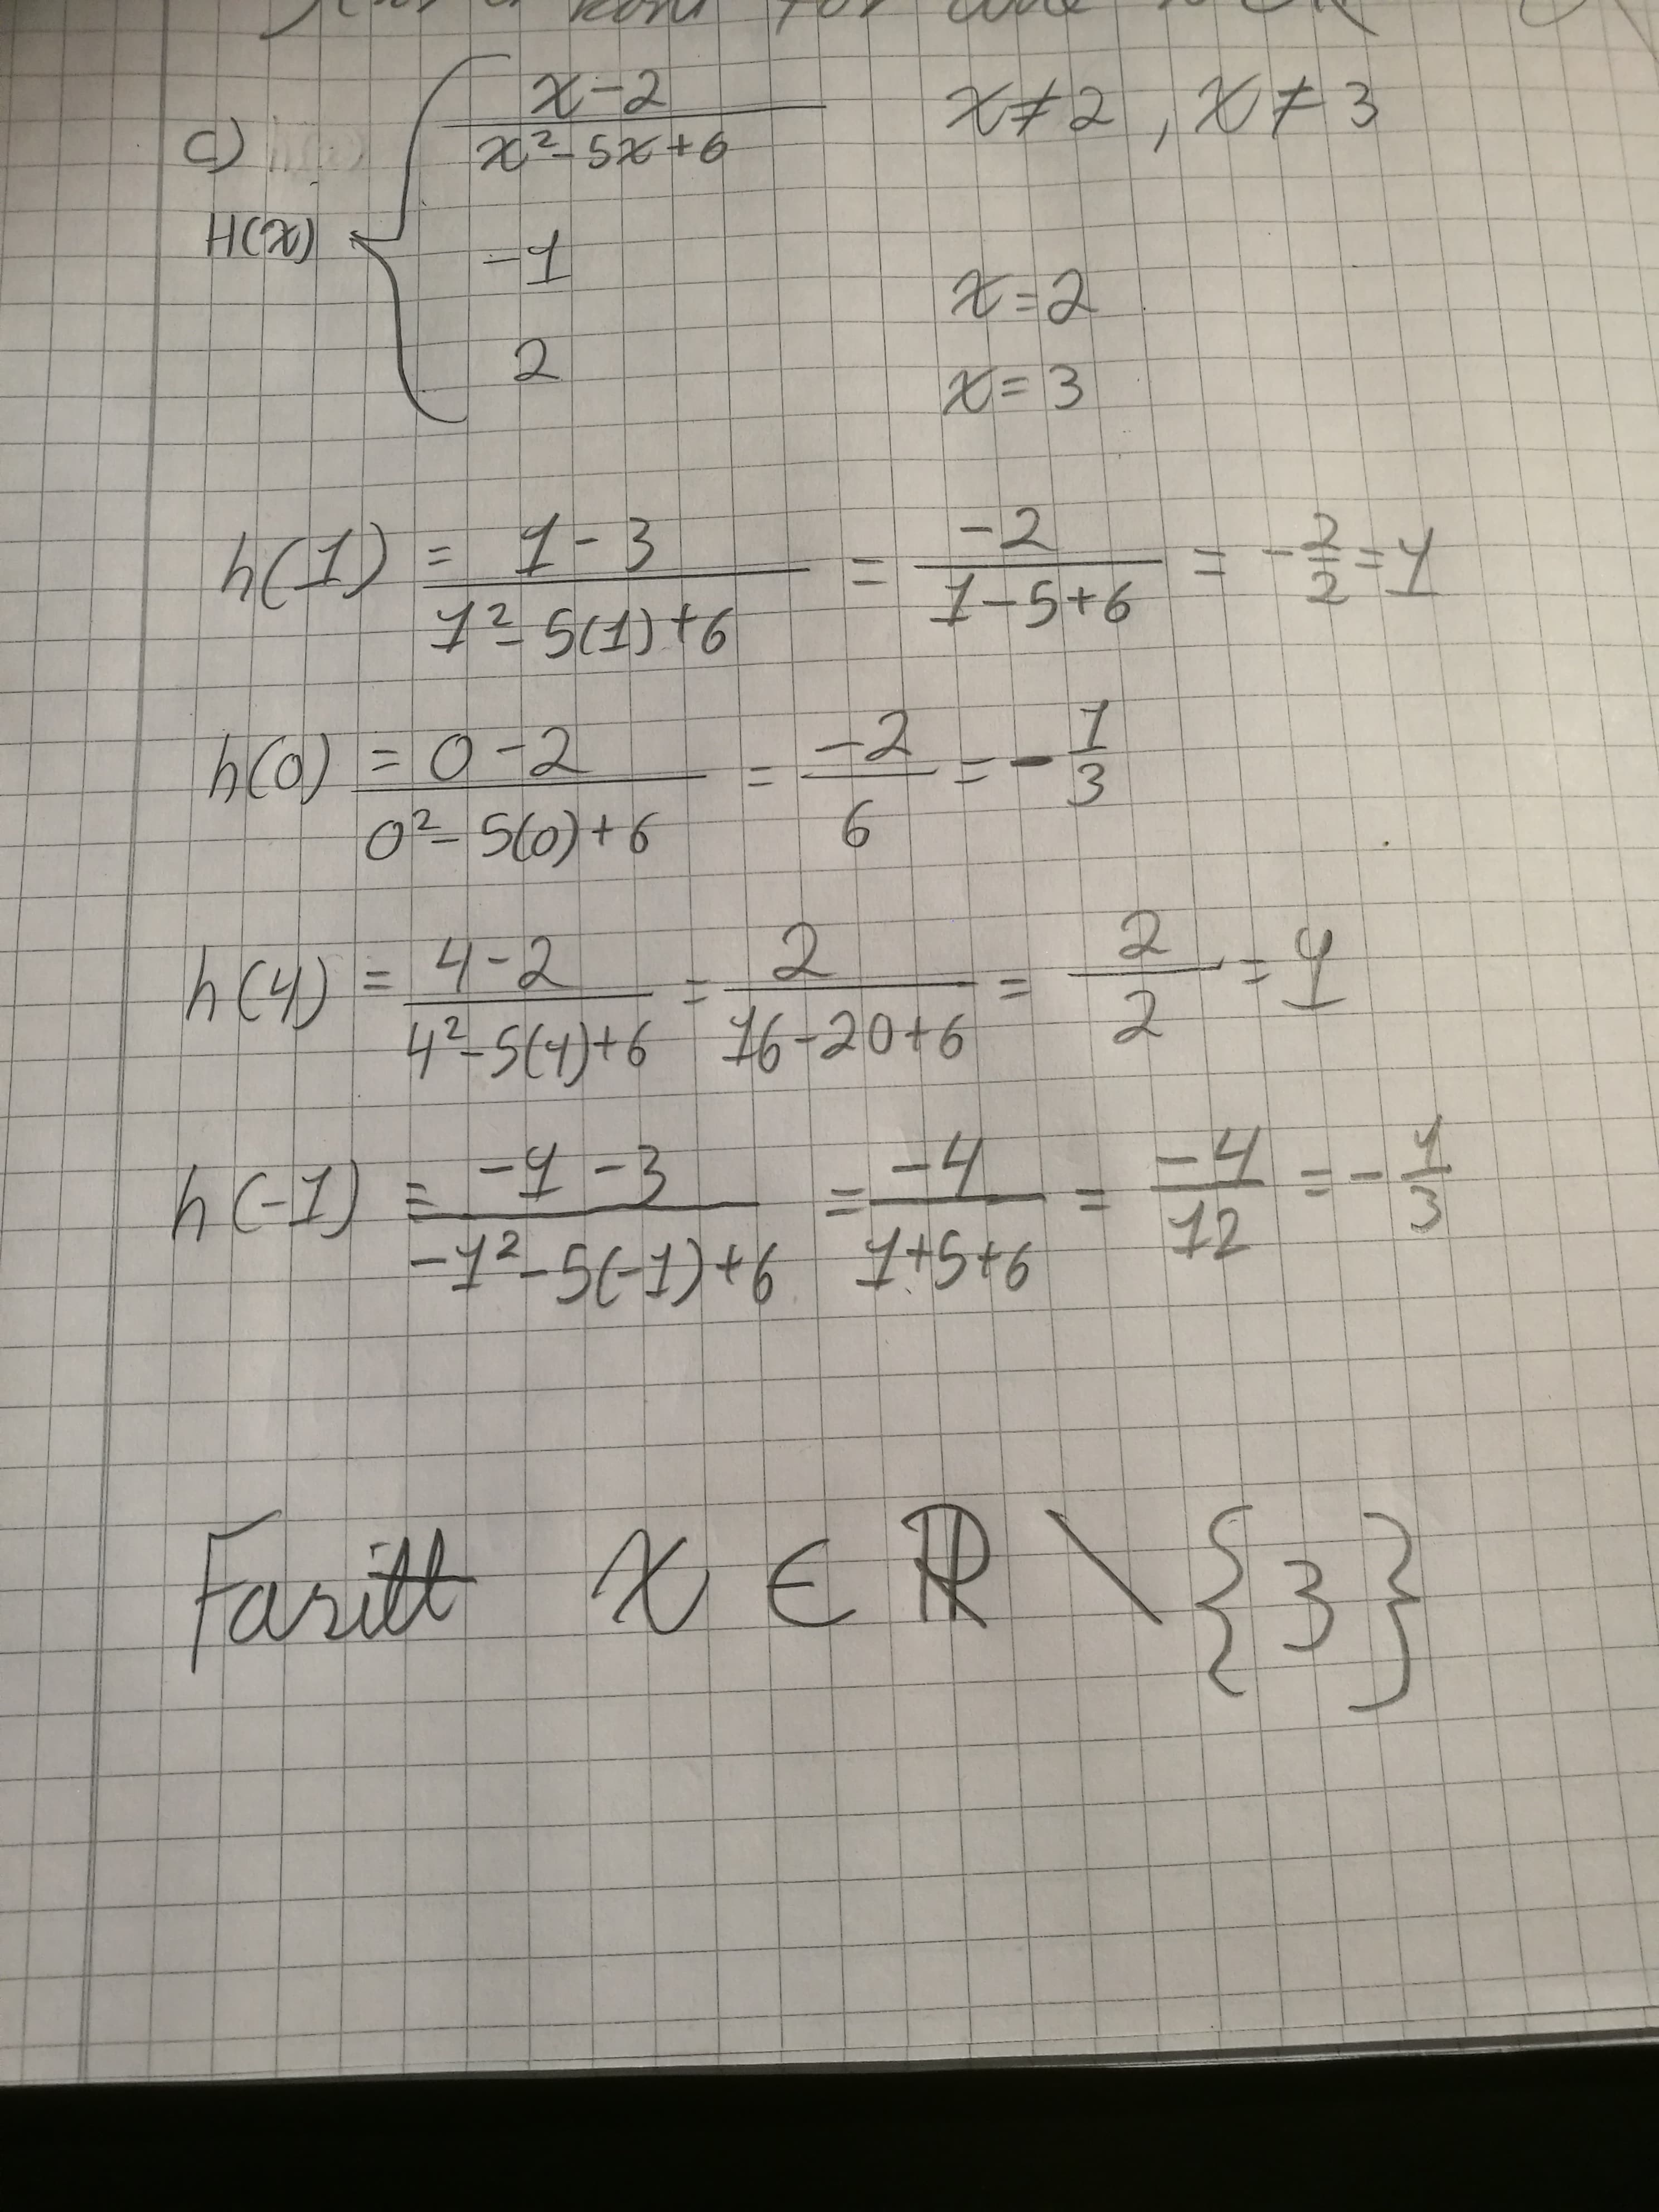 för
c)
x-2 / x²-5x+6    x≠2, x≠3
H(x)
-1    x=2
2    x=3
h(1) = 1-3 / 1²-5(1)+6 = -2 / 1-5+6 = -2/2 = 1
h(0) = 0-2 / 0²-5(0)+6 = -2 / 6 = -1/3
h(4) = 4-2 / 4²-5(4)+6 = 2 / 16-20+6 = 2 / 2 = 1
h(-1) = -1-3 / -1²-5(-1)+6 = -4 / 1+5+6 = -4 / 12 = -1/3
x ∈ ℝ \ {3}